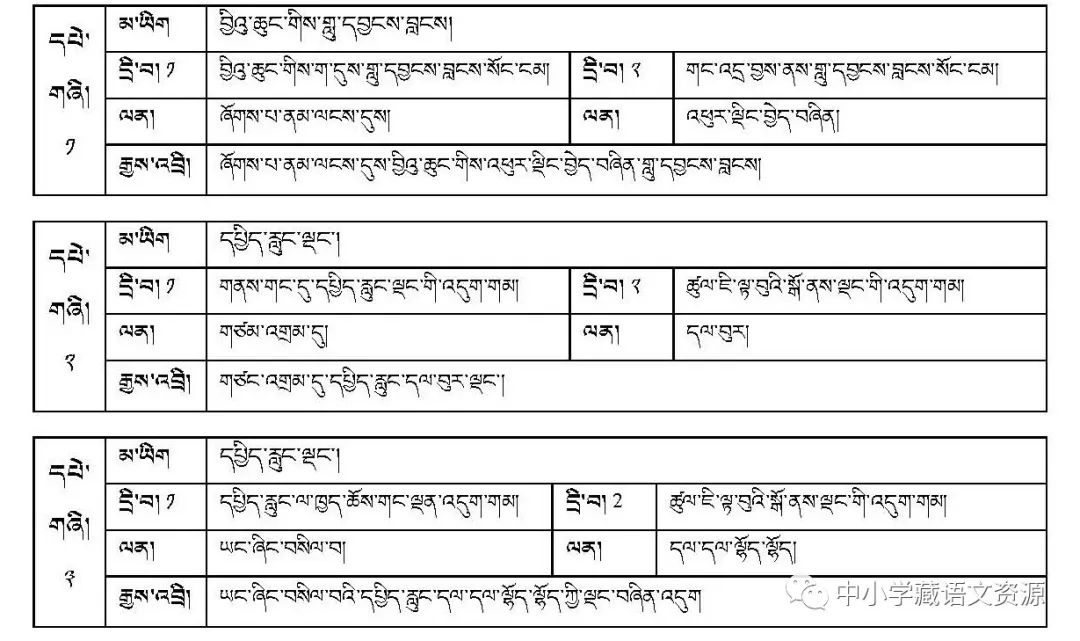 དཔེ་གཞི། ༡
མ་ཡིག བྱིའུ་ཆུང་གིས་གླུ་དབྱངས་བླངས།
དྲི་བ། ༡ བྱིའུ་ཆུང་གིས་ག་དུས་གླུ་དབྱངས་བླངས་སོང་ངམ། དྲི་བ། ༢ གང་འདྲ་བྱས་ནས་གླུ་དབྱངས་བླངས་སོང་ངམ།
ལན། ཞོགས་པ་ནམ་ལངས་དུས། ལན། འཕུར་ལྡིང་བྱེད་བཞིན།
རྒྱས་འབྲི། ཞོགས་པ་ནམ་ལངས་དུས་བྱིའུ་ཆུང་གིས་འཕུར་ལྡིང་བྱེད་བཞིན་གླུ་དབྱངས་བླངས།
དཔེ་གཞི། ༢
མ་ཡིག དཔྱིད་རླུང་ལྡང་།
དྲི་བ། ༡ གནས་གང་དུ་དཔྱིད་རླུང་ལྡང་གི་འདུག་གམ། དྲི་བ། ༢ ཚུལ་ཇི་ལྟ་བུའི་སྒོ་ནས་ལྡང་གི་འདུག་གམ།
ལན། གཙམ་འགྲམ་དུ། ལན། དལ་བུར།
རྒྱས་འབྲི། གཙང་འགྲམ་དུ་དཔྱིད་རླུང་དལ་བུར་ལྡང་།
དཔེ་གཞི། ༣
མ་ཡིག དཔྱིད་རླུང་ལྡང་།
དྲི་བ། ༡ དཔྱིད་རླུང་ལ་ཁྱད་ཆོས་གང་ལྡན་འདུག་གམ། དྲི་བ། 2 ཚུལ་ཇི་ལྟ་བུའི་སྒོ་ནས་ལྡང་གི་འདུག་གམ།
ལན། ཡང་ཞིང་བསིལ་བ། ལན། དལ་དལ་ལྷོད་ལྷོད།
རྒྱས་འབྲི། ཡང་ཞིང་བསིལ་བའི་དཔྱིད་རླུང་དལ་དལ་ལྷོད་ལྷོད་ཀྱི་ལྡང་བཞིན་འདུག
中小学藏语文资源